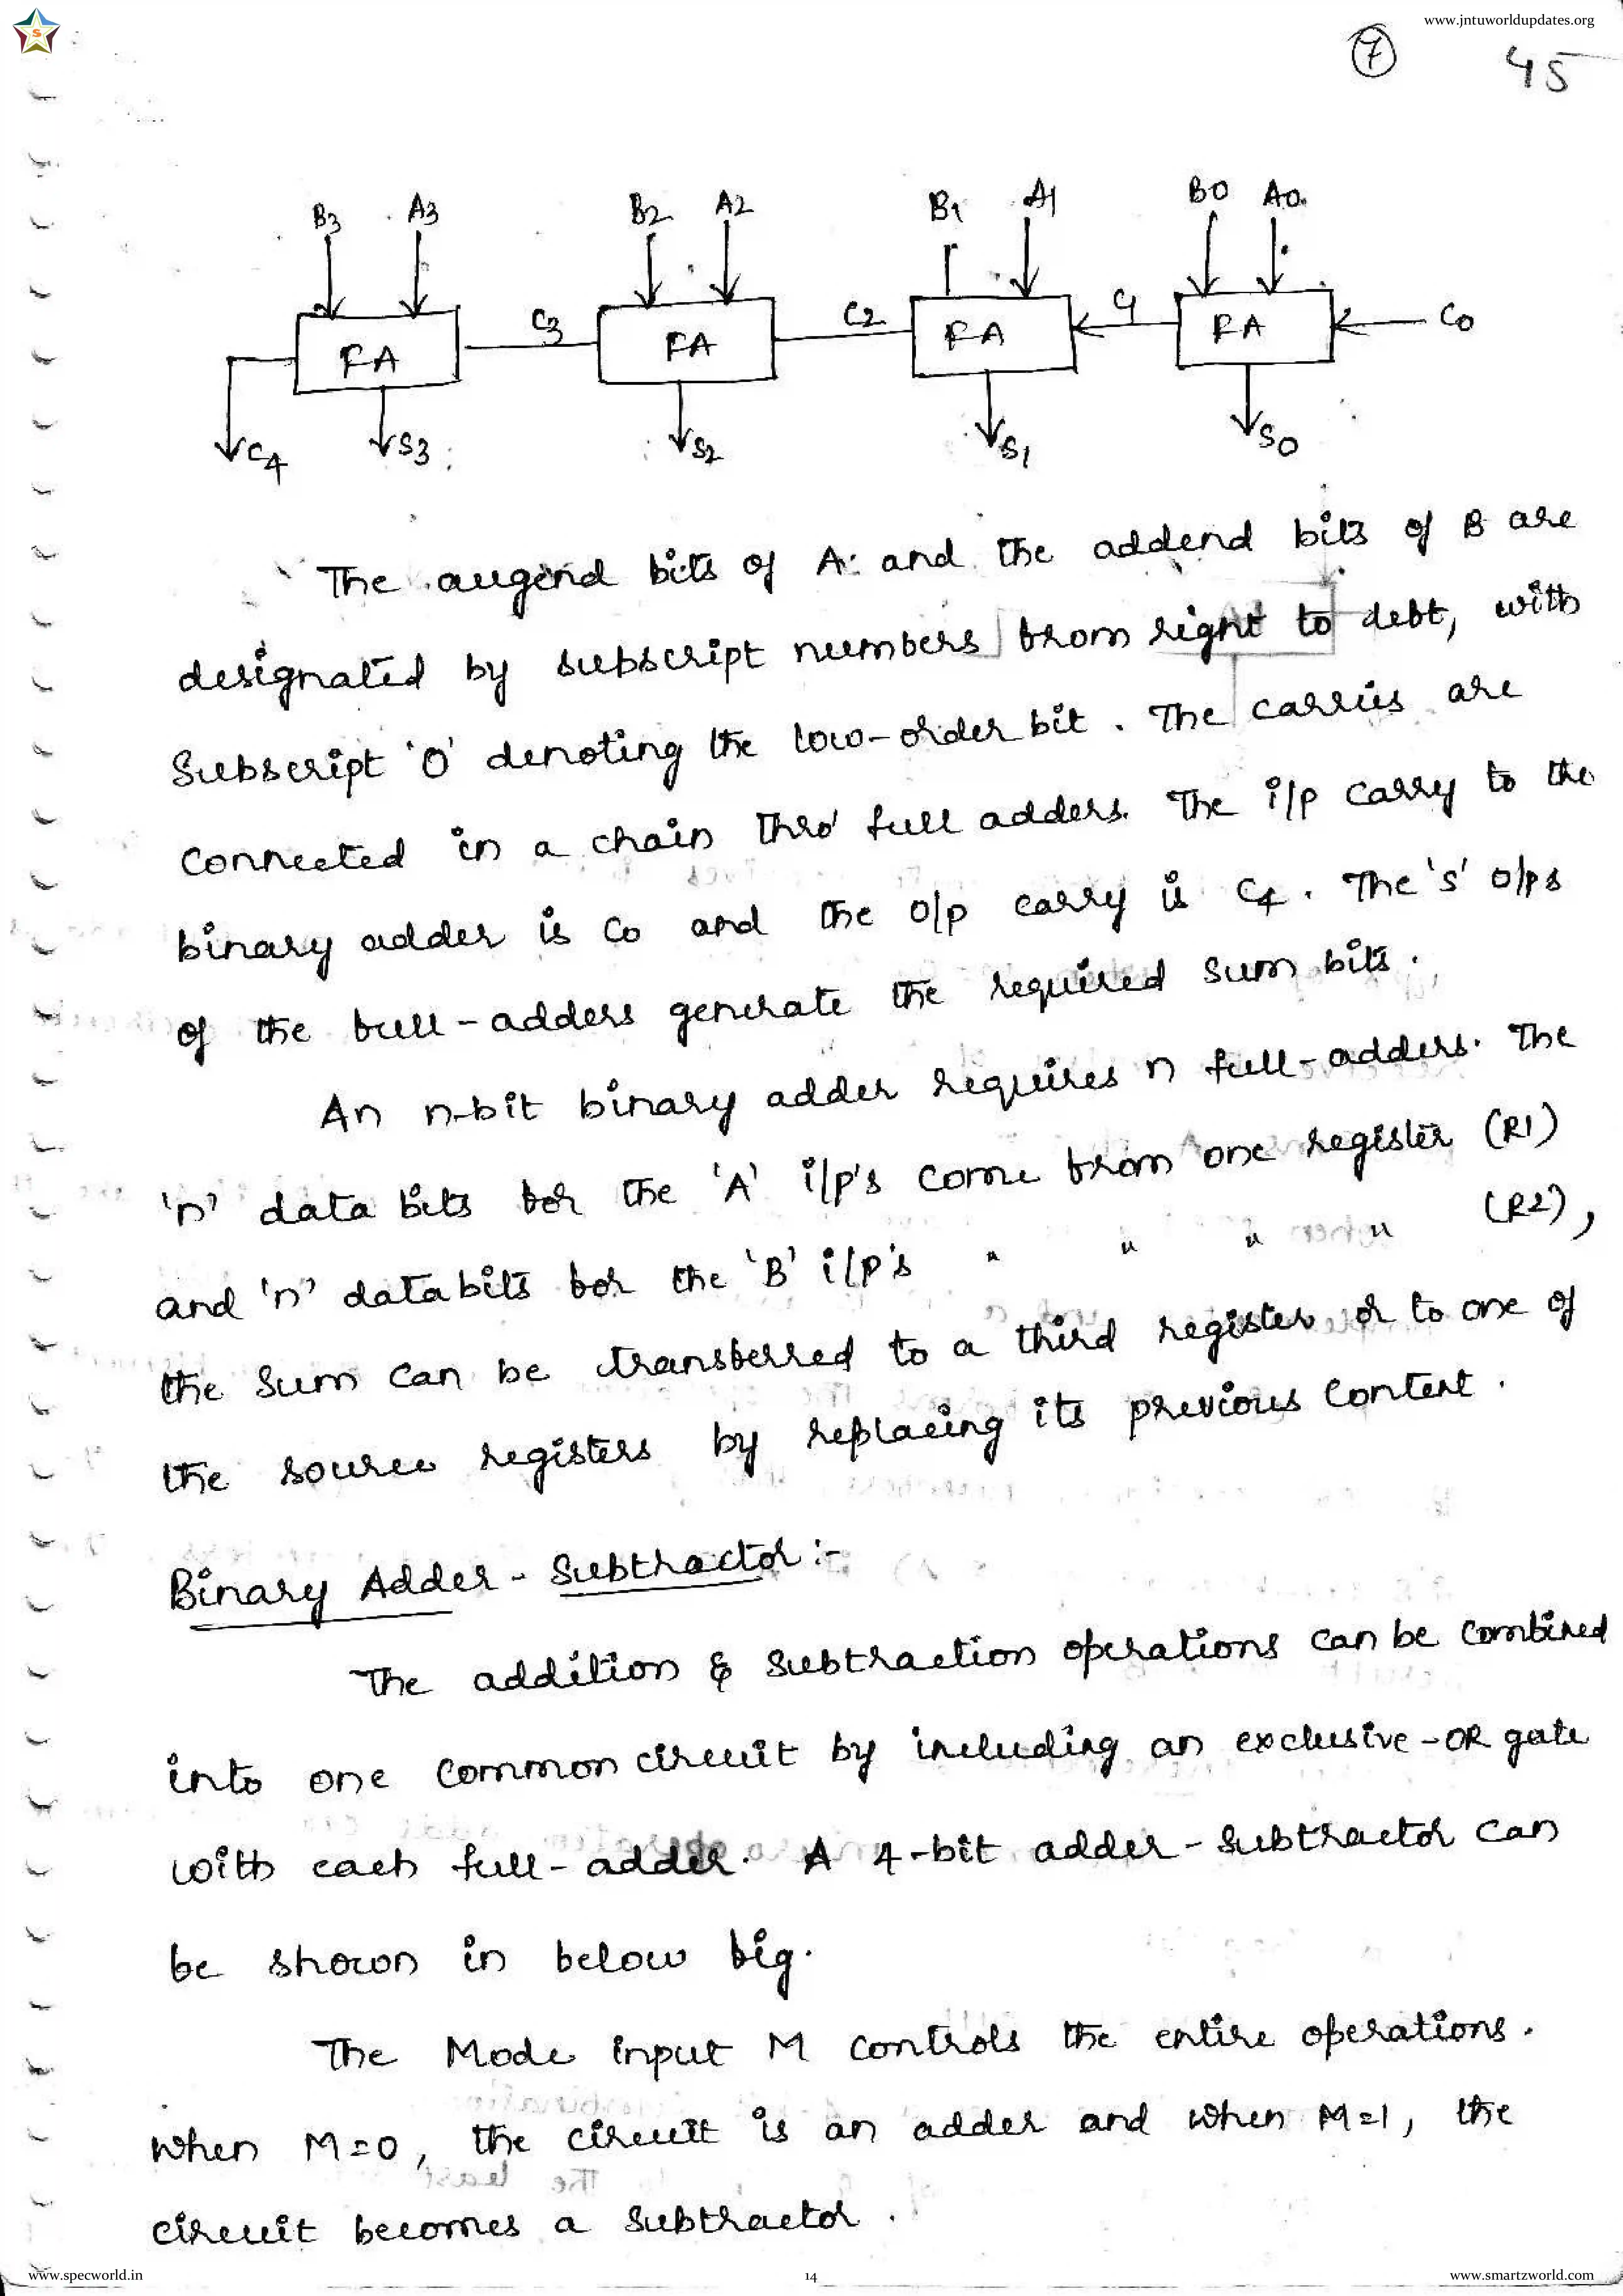 www.jntuworldupdates.org
S
7 45
B3 A3 B2 A2 B1 A1 B0 A0
FA C3 FA C2 FA C1 FA C0
C4 S3 S2 S1 S0
The augend bits of A and the addend bits of B are
designated by subscript numbers from right to debt, with
Subscript '0' denoting the low-order bit. The carries are
connected in a chain thro' full adders. The i/p carry to the
binary adder is C0 and the o/p carry is C4. The 's' o/ps
of the full-adders generate the required sum bits.
An n-bit binary adder requires n full-adders. The
'n' data bits for the 'A' i/p's come from one register (R1)
and 'n' data bits for the 'B' i/p's " " " " (R2),
the sum can be transferred to a third register or to one of
the source registers by replacing its previous content.
Binary Adder - Subtractor :-
The addition & subtraction operations can be combined
into one common circuit by including an exclusive-OR gate
with each full-adder. A 4-bit adder-subtractor can
be shown in below fig.
The Mode input M controls the entire operations.
when M=0, the circuit is an adder and when M=1, the
circuit becomes a subtractor.
www.specworld.in 14 www.smartzworld.com